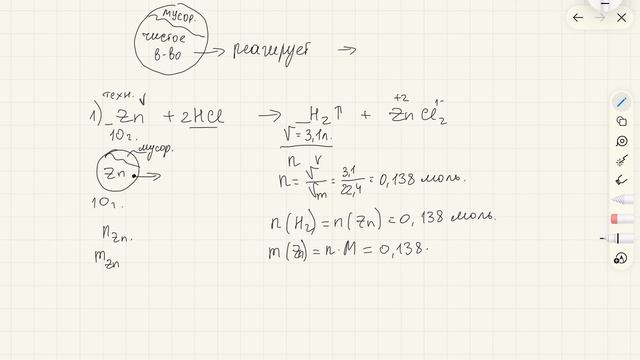 мусор.
чистое
в-во → реагирует →
техн.
1) _Zn + 2HCl → _H₂↑ + Zn⁺²Cl₂¹⁻
10г.
V = 3,1л.
мусор.
Zn →
10г.
n V
n = V/Vm = 3,1/22,4 = 0,138 моль.
n(H₂) = n(Zn) = 0,138 моль.
n Zn.
m(Zn) = n·M = 0,138.
m Zn